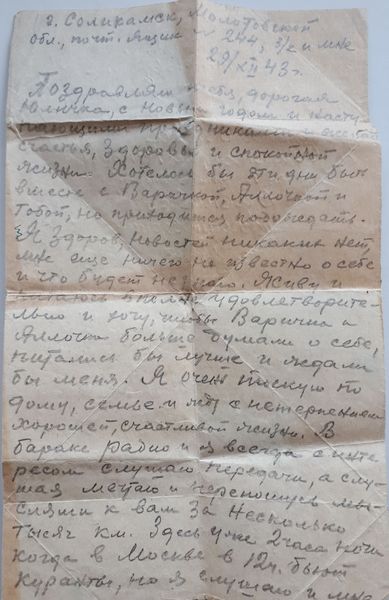 г. Соликамск, Молотовской
обл., почт. ящик № 244, 3/2 и мне
29/XII 43 г.
Поздравляю тебя, дорогая
Юличка, с новым годом и насту
пающими праздниками и желаю
счастья, здоровья и спокойной
жизни. Хотелось бы эти дни быть
вместе с Варичкой, Аллочкой и
тобой, но приходится подождать.
Я здоров, новостей никаких нет,
мне еще ничего не известно о себе
и что будет не знаю. Живу и
питаюсь вполне удовлетворите-
льно и хочу, чтобы Варичка и
Аллочка больше думали о себе,
питались бы лучше и ждали
бы меня. Я очень тоскую по
дому, семье и жду с нетерпением
хорошей, счастливой жизни. В
бараке радио и я всегда с инте
ресом слушаю передачи, а слу-
шая мечтаю и переношусь мы-
слями к вам за несколько
тысяч км. Здесь уже 2 часа ночи
когда в Москве в 12 ч. бьют
куранты, но я слушаю и мне